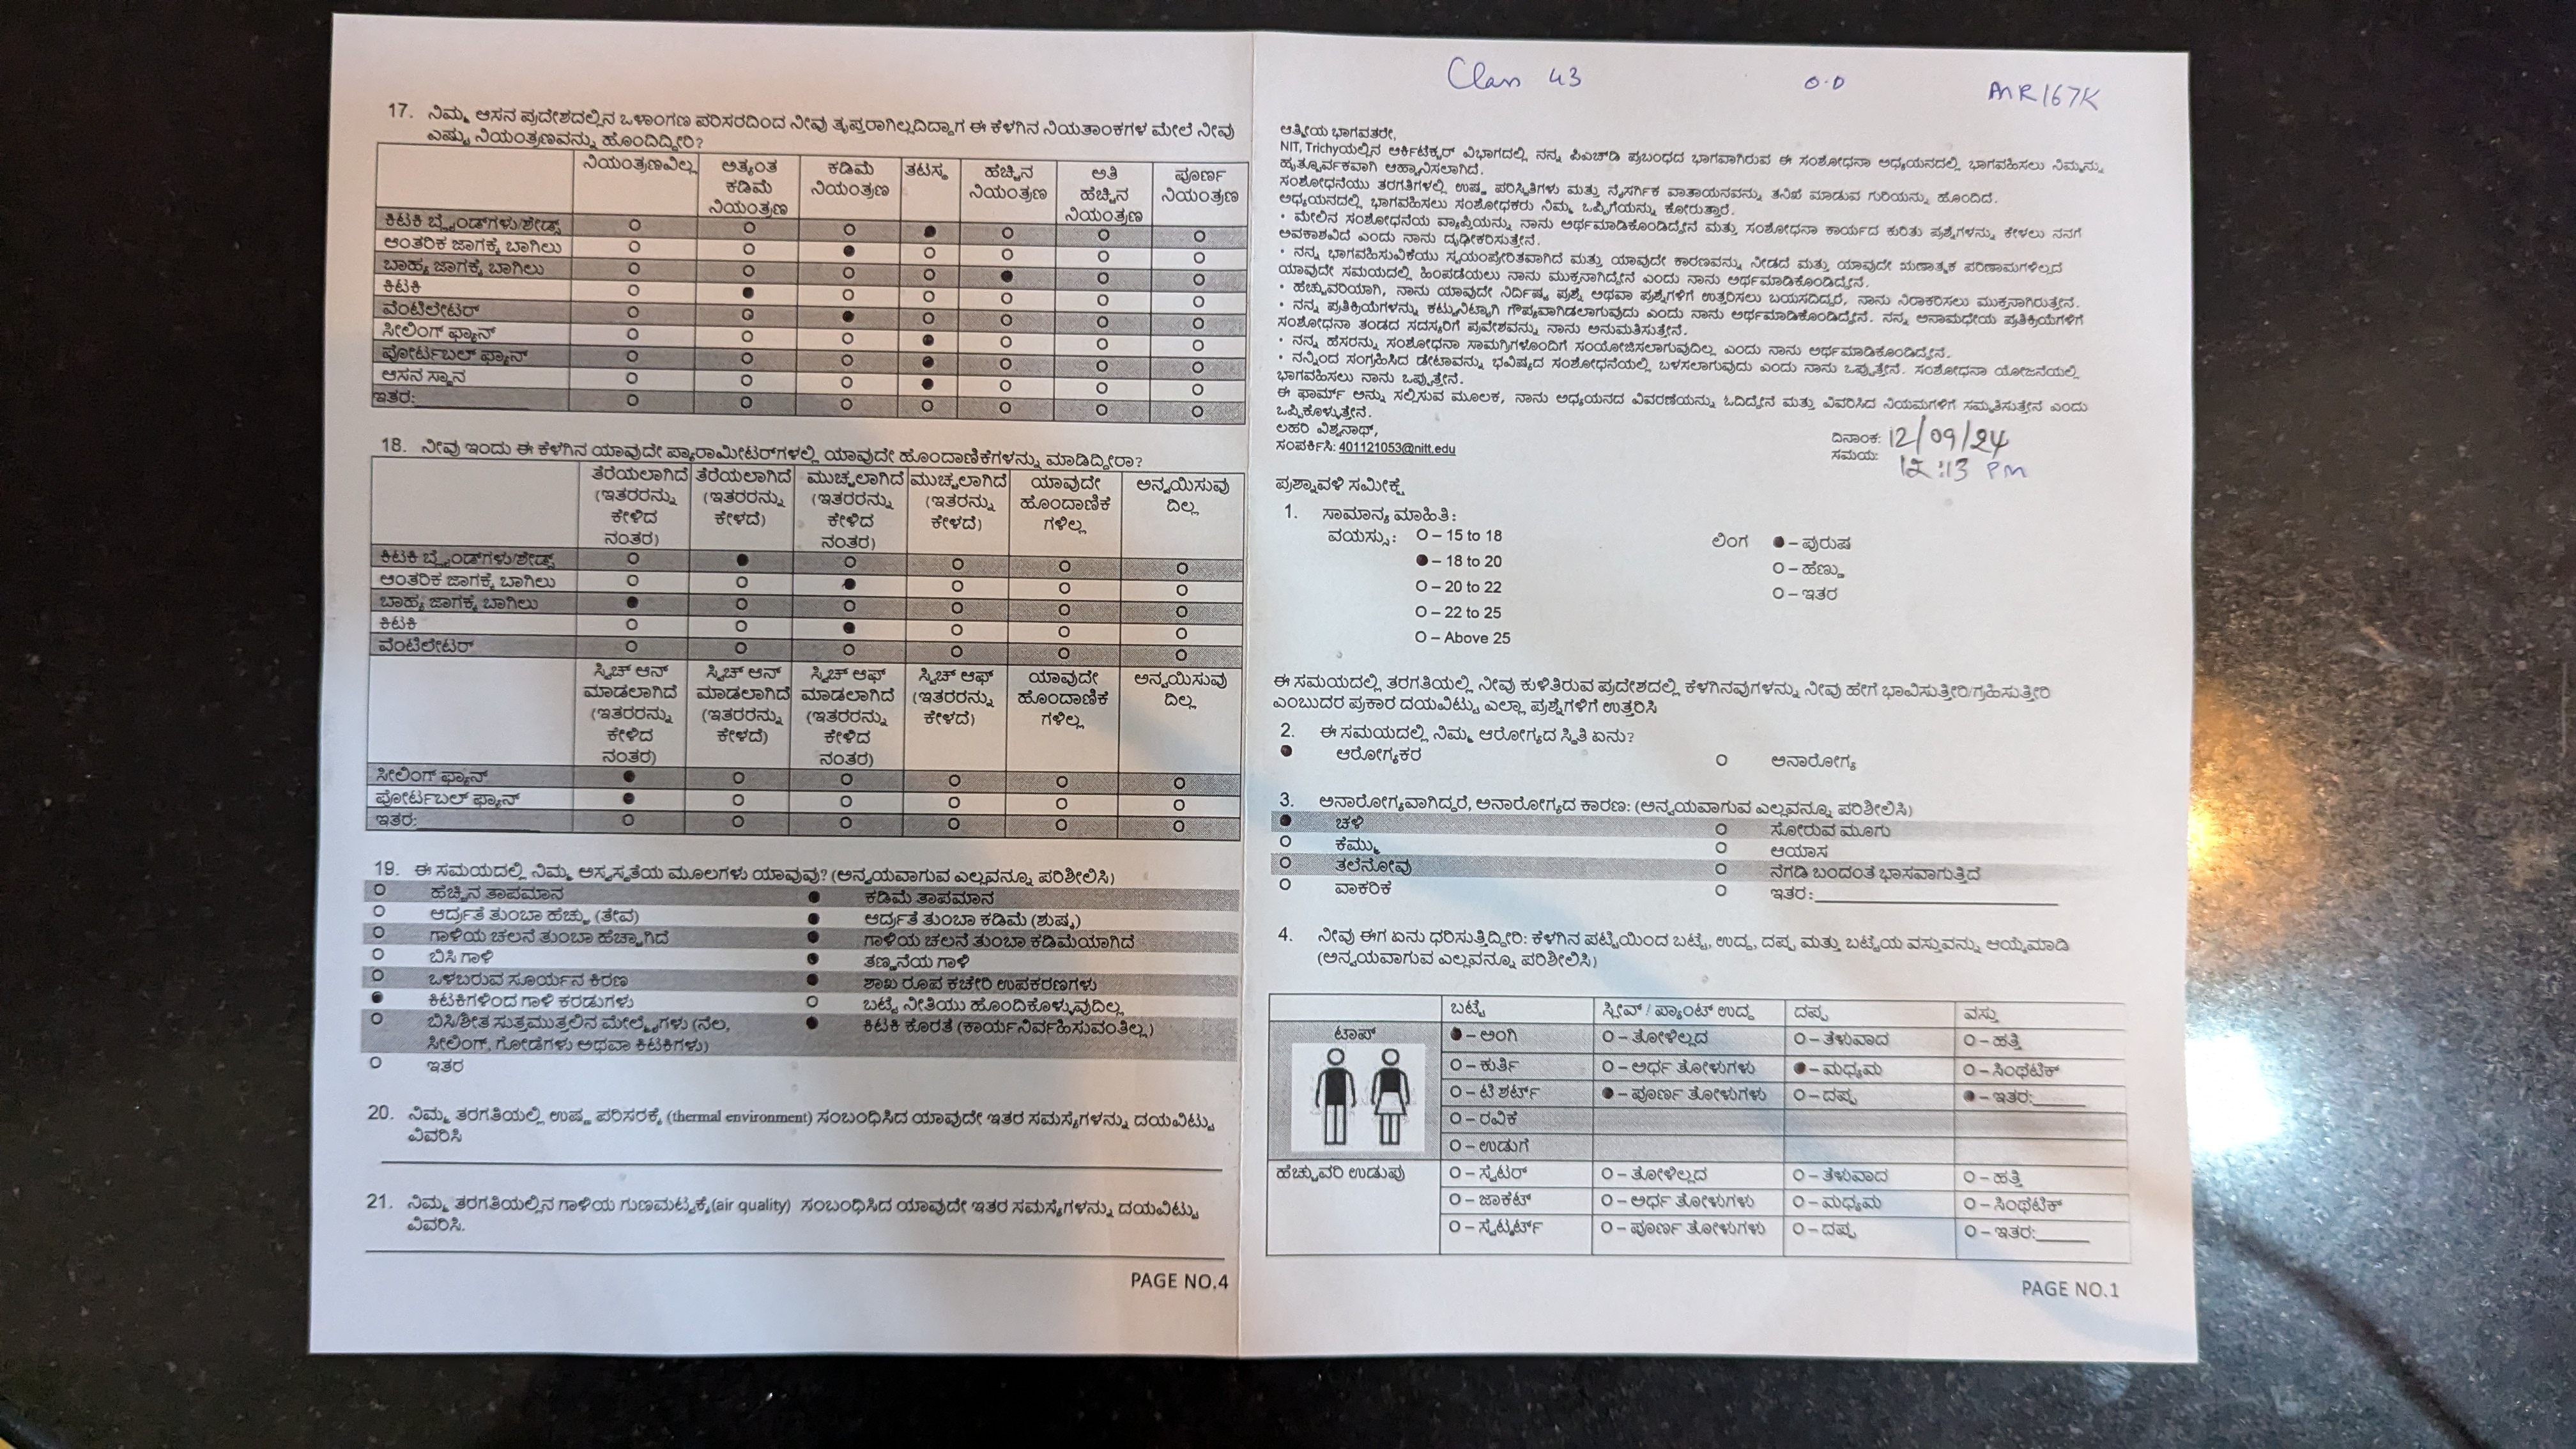 17. ನಿಮ್ಮ ಆಸನ ಪ್ರದೇಶದಲ್ಲಿನ ಒಳಾಂಗಣ ಪರಿಸರದಿಂದ ನೀವು ತೃಪ್ತರಾಗಿಲ್ಲದಿದ್ದಾಗ ಈ ಕೆಳಗಿನ ನಿಯತಾಂಕಗಳ ಮೇಲೆ ನೀವು
ಎಷ್ಟು ನಿಯಂತ್ರಣವನ್ನು ಹೊಂದಿದ್ದೀರಿ?
ನಿಯಂತ್ರಣವಿಲ್ಲ ಅತ್ಯಂತ ಕಡಿಮೆ ನಿಯಂತ್ರಣ ಕಡಿಮೆ ನಿಯಂತ್ರಣ ತಟಸ್ಥ ಹೆಚ್ಚಿನ ನಿಯಂತ್ರಣ ಅತಿ ಹೆಚ್ಚಿನ ನಿಯಂತ್ರಣ ಪೂರ್ಣ ನಿಯಂತ್ರಣ
ಕಿಟಕಿ ಬ್ಲೈಂಡ್‌ಗಳು/ಶೇಡ್ಸ್
ಆಂತರಿಕ ಜಾಗಕ್ಕೆ ಬಾಗಿಲು
ಬಾಹ್ಯ ಜಾಗಕ್ಕೆ ಬಾಗಿಲು
ಕಿಟಕಿ
ವೆಂಟಿಲೇಟರ್
ಸೀಲಿಂಗ್ ಫ್ಯಾನ್
ಪೋರ್ಟಬಲ್ ಫ್ಯಾನ್
ಆಸನ ಸ್ಥಾನ
ಇತರ:
18. ನೀವು ಇಂದು ಈ ಕೆಳಗಿನ ಯಾವುದೇ ಪ್ಯಾರಾಮೀಟರ್‌ಗಳಲ್ಲಿ ಯಾವುದೇ ಹೊಂದಾಣಿಕೆಗಳನ್ನು ಮಾಡಿದ್ದೀರಾ?
ತೆರೆಯಲಾಗಿದೆ (ಇತರರನ್ನು ಕೇಳಿದ ನಂತರ) ತೆರೆಯಲಾಗಿದೆ (ಇತರರನ್ನು ಕೇಳದೆ) ಮುಚ್ಚಲಾಗಿದೆ (ಇತರರನ್ನು ಕೇಳಿದ ನಂತರ) ಮುಚ್ಚಲಾಗಿದೆ (ಇತರನ್ನು ಕೇಳದೆ) ಯಾವುದೇ ಹೊಂದಾಣಿಕೆ ಗಳಿಲ್ಲ ಅನ್ವಯಿಸುವು ದಿಲ್ಲ
ಕಿಟಕಿ ಬ್ಲೈಂಡ್‌ಗಳು/ಶೇಡ್ಸ್
ಆಂತರಿಕ ಜಾಗಕ್ಕೆ ಬಾಗಿಲು
ಬಾಹ್ಯ ಜಾಗಕ್ಕೆ ಬಾಗಿಲು
ಕಿಟಕಿ
ವೆಂಟಿಲೇಟರ್
ಸ್ವಿಚ್ ಆನ್ ಮಾಡಲಾಗಿದೆ (ಇತರರನ್ನು ಕೇಳಿದ ನಂತರ) ಸ್ವಿಚ್ ಆನ್ ಮಾಡಲಾಗಿದೆ (ಇತರರನ್ನು ಕೇಳದೆ) ಸ್ವಿಚ್ ಆಫ್ ಮಾಡಲಾಗಿದೆ (ಇತರರನ್ನು ಕೇಳಿದ ನಂತರ) ಸ್ವಿಚ್ ಆಫ್ (ಇತರರನ್ನು ಕೇಳದೆ) ಯಾವುದೇ ಹೊಂದಾಣಿಕೆ ಗಳಿಲ್ಲ ಅನ್ವಯಿಸುವು ದಿಲ್ಲ
ಸೀಲಿಂಗ್ ಫ್ಯಾನ್
ಪೋರ್ಟಬಲ್ ಫ್ಯಾನ್
ಇತರ:
19. ಈ ಸಮಯದಲ್ಲಿ ನಿಮ್ಮ ಅಸ್ವಸ್ಥತೆಯ ಮೂಲಗಳು ಯಾವುವು? (ಅನ್ವಯವಾಗುವ ಎಲ್ಲವನ್ನೂ ಪರಿಶೀಲಿಸಿ)
ಹೆಚ್ಚಿನ ತಾಪಮಾನ ಕಡಿಮೆ ತಾಪಮಾನ
ಆರ್ದ್ರತೆ ತುಂಬಾ ಹೆಚ್ಚು (ತೇವ) ಆರ್ದ್ರತೆ ತುಂಬಾ ಕಡಿಮೆ (ಶುಷ್ಕ)
ಗಾಳಿಯ ಚಲನೆ ತುಂಬಾ ಹೆಚ್ಚಾಗಿದೆ ಗಾಳಿಯ ಚಲನೆ ತುಂಬಾ ಕಡಿಮೆಯಾಗಿದೆ
ಬಿಸಿ ಗಾಳಿ ತಣ್ಣನೆಯ ಗಾಳಿ
ಒಳಬರುವ ಸೂರ್ಯನ ಕಿರಣ ಶಾಖ ರೂಪ ಕಚೇರಿ ಉಪಕರಣಗಳು
ಕಿಟಕಿಗಳಿಂದ ಗಾಳಿ ಕರಡುಗಳು ಬಟ್ಟೆ ನೀತಿಯು ಹೊಂದಿಕೊಳ್ಳುವುದಿಲ್ಲ
ಬಿಸಿ/ಶೀತ ಸುತ್ತಮುತ್ತಲಿನ ಮೇಲ್ಮೈಗಳು (ನೆಲ, ಕಿಟಕಿ ಕೊರತೆ (ಕಾರ್ಯನಿರ್ವಹಿಸುವಂತಿಲ್ಲ)
ಸೀಲಿಂಗ್, ಗೋಡೆಗಳು ಅಥವಾ ಕಿಟಕಿಗಳು)
ಇತರ
20. ನಿಮ್ಮ ತರಗತಿಯಲ್ಲಿ ಉಷ್ಣ ಪರಿಸರಕ್ಕೆ (thermal environment) ಸಂಬಂಧಿಸಿದ ಯಾವುದೇ ಇತರ ಸಮಸ್ಯೆಗಳನ್ನು ದಯವಿಟ್ಟು
ವಿವರಿಸಿ
21. ನಿಮ್ಮ ತರಗತಿಯಲ್ಲಿನ ಗಾಳಿಯ ಗುಣಮಟ್ಟಕ್ಕೆ(air quality) ಸಂಬಂಧಿಸಿದ ಯಾವುದೇ ಇತರ ಸಮಸ್ಯೆಗಳನ್ನು ದಯವಿಟ್ಟು
ವಿವರಿಸಿ.
PAGE NO.4
Class 43 0.0 MR167K
ಆತ್ಮೀಯ ಭಾಗವತರೇ,
NIT, Trichyಯಲ್ಲಿನ ಆರ್ಕಿಟೆಕ್ಚರ್ ವಿಭಾಗದಲ್ಲಿ ನನ್ನ ಪಿಎಚ್‌ಡಿ ಪ್ರಬಂಧದ ಭಾಗವಾಗಿರುವ ಈ ಸಂಶೋಧನಾ ಅಧ್ಯಯನದಲ್ಲಿ ಭಾಗವಹಿಸಲು ನಿಮ್ಮನ್ನು
ಹೃತ್ಪೂರ್ವಕವಾಗಿ ಆಹ್ವಾನಿಸಲಾಗಿದೆ.
ಸಂಶೋಧನೆಯು ತರಗತಿಗಳಲ್ಲಿ ಉಷ್ಣ ಪರಿಸ್ಥಿತಿಗಳು ಮತ್ತು ನೈಸರ್ಗಿಕ ವಾತಾಯನವನ್ನು ತನಿಖೆ ಮಾಡುವ ಗುರಿಯನ್ನು ಹೊಂದಿದೆ.
ಅಧ್ಯಯನದಲ್ಲಿ ಭಾಗವಹಿಸಲು ಸಂಶೋಧಕರು ನಿಮ್ಮ ಒಪ್ಪಿಗೆಯನ್ನು ಕೋರುತ್ತಾರೆ.
• ಮೇಲಿನ ಸಂಶೋಧನೆಯ ವ್ಯಾಪ್ತಿಯನ್ನು ನಾನು ಅರ್ಥಮಾಡಿಕೊಂಡಿದ್ದೇನೆ ಮತ್ತು ಸಂಶೋಧನಾ ಕಾರ್ಯದ ಕುರಿತು ಪ್ರಶ್ನೆಗಳನ್ನು ಕೇಳಲು ನನಗೆ
ಅವಕಾಶವಿದೆ ಎಂದು ನಾನು ದೃಢೀಕರಿಸುತ್ತೇನೆ.
• ನನ್ನ ಭಾಗವಹಿಸುವಿಕೆಯು ಸ್ವಯಂಪ್ರೇರಿತವಾಗಿದೆ ಮತ್ತು ಯಾವುದೇ ಕಾರಣವನ್ನು ನೀಡದೆ ಮತ್ತು ಯಾವುದೇ ಋಣಾತ್ಮಕ ಪರಿಣಾಮಗಳಿಲ್ಲದೆ
ಯಾವುದೇ ಸಮಯದಲ್ಲಿ ಹಿಂಪಡೆಯಲು ನಾನು ಮುಕ್ತನಾಗಿದ್ದೇನೆ ಎಂದು ನಾನು ಅರ್ಥಮಾಡಿಕೊಂಡಿದ್ದೇನೆ.
• ಹೆಚ್ಚುವರಿಯಾಗಿ, ನಾನು ಯಾವುದೇ ನಿರ್ದಿಷ್ಟ ಪ್ರಶ್ನೆ ಅಥವಾ ಪ್ರಶ್ನೆಗಳಿಗೆ ಉತ್ತರಿಸಲು ಬಯಸದಿದ್ದರೆ, ನಾನು ನಿರಾಕರಿಸಲು ಮುಕ್ತನಾಗಿರುತ್ತೇನೆ.
• ನನ್ನ ಪ್ರತಿಕ್ರಿಯೆಗಳನ್ನು ಕಟ್ಟುನಿಟ್ಟಾಗಿ ಗೌಪ್ಯವಾಗಿಡಲಾಗುವುದು ಎಂದು ನಾನು ಅರ್ಥಮಾಡಿಕೊಂಡಿದ್ದೇನೆ. ನನ್ನ ಅನಾಮಧೇಯ ಪ್ರತಿಕ್ರಿಯೆಗಳಿಗೆ
ಸಂಶೋಧನಾ ತಂಡದ ಸದಸ್ಯರಿಗೆ ಪ್ರವೇಶವನ್ನು ನಾನು ಅನುಮತಿಸುತ್ತೇನೆ.
• ನನ್ನ ಹೆಸರನ್ನು ಸಂಶೋಧನಾ ಸಾಮಗ್ರಿಗಳೊಂದಿಗೆ ಸಂಯೋಜಿಸಲಾಗುವುದಿಲ್ಲ ಎಂದು ನಾನು ಅರ್ಥಮಾಡಿಕೊಂಡಿದ್ದೇನೆ.
• ನನ್ನಿಂದ ಸಂಗ್ರಹಿಸಿದ ಡೇಟಾವನ್ನು ಭವಿಷ್ಯದ ಸಂಶೋಧನೆಯಲ್ಲಿ ಬಳಸಲಾಗುವುದು ಎಂದು ನಾನು ಒಪ್ಪುತ್ತೇನೆ. ಸಂಶೋಧನಾ ಯೋಜನೆಯಲ್ಲಿ
ಭಾಗವಹಿಸಲು ನಾನು ಒಪ್ಪುತ್ತೇನೆ.
ಈ ಫಾರ್ಮ್ ಅನ್ನು ಸಲ್ಲಿಸುವ ಮೂಲಕ, ನಾನು ಅಧ್ಯಯನದ ವಿವರಣೆಯನ್ನು ಓದಿದ್ದೇನೆ ಮತ್ತು ವಿವರಿಸಿದ ನಿಯಮಗಳಿಗೆ ಸಮ್ಮತಿಸುತ್ತೇನೆ ಎಂದು
ಒಪ್ಪಿಕೊಳ್ಳುತ್ತೇನೆ.
ಲಹರಿ ವಿಶ್ವನಾಥ್,
ಸಂಪರ್ಕಿಸಿ: 401121053@nitt.edu
ದಿನಾಂಕ: 12/09/24
ಸಮಯ: 12:13 PM
ಪ್ರಶ್ನಾವಳಿ ಸಮೀಕ್ಷೆ
1. ಸಾಮಾನ್ಯ ಮಾಹಿತಿ:
ವಯಸ್ಸು: O – 15 to 18 ಲಿಂಗ – ಪುರುಷ
– 18 to 20 O – ಹೆಣ್ಣು
O – 20 to 22 O – ಇತರ
O – 22 to 25
O – Above 25
ಈ ಸಮಯದಲ್ಲಿ ತರಗತಿಯಲ್ಲಿ ನೀವು ಕುಳಿತಿರುವ ಪ್ರದೇಶದಲ್ಲಿ ಕೆಳಗಿನವುಗಳನ್ನು ನೀವು ಹೇಗೆ ಭಾವಿಸುತ್ತೀರಿ/ಗ್ರಹಿಸುತ್ತೀರಿ
ಎಂಬುದರ ಪ್ರಕಾರ ದಯವಿಟ್ಟು ಎಲ್ಲಾ ಪ್ರಶ್ನೆಗಳಿಗೆ ಉತ್ತರಿಸಿ
2. ಈ ಸಮಯದಲ್ಲಿ ನಿಮ್ಮ ಆರೋಗ್ಯದ ಸ್ಥಿತಿ ಏನು?
ಆರೋಗ್ಯಕರ ಅನಾರೋಗ್ಯ
3. ಅನಾರೋಗ್ಯವಾಗಿದ್ದರೆ, ಅನಾರೋಗ್ಯದ ಕಾರಣ: (ಅನ್ವಯವಾಗುವ ಎಲ್ಲವನ್ನೂ ಪರಿಶೀಲಿಸಿ)
ಚಳಿ ಸೋರುವ ಮೂಗು
ಕೆಮ್ಮು ಆಯಾಸ
ತಲೆನೋವು ನೆಗಡಿ ಬಂದಂತೆ ಭಾಸವಾಗುತ್ತಿದೆ
ವಾಕರಿಕೆ ಇತರ:
4. ನೀವು ಈಗ ಏನು ಧರಿಸುತ್ತಿದ್ದೀರಿ: ಕೆಳಗಿನ ಪಟ್ಟಿಯಿಂದ ಬಟ್ಟೆ, ಉದ್ದ, ದಪ್ಪ ಮತ್ತು ಬಟ್ಟೆಯ ವಸ್ತುವನ್ನು ಆಯ್ಕೆಮಾಡಿ
(ಅನ್ವಯವಾಗುವ ಎಲ್ಲವನ್ನೂ ಪರಿಶೀಲಿಸಿ)
ಬಟ್ಟೆ ಸ್ಲೀವ್ / ಪ್ಯಾಂಟ್ ಉದ್ದ ದಪ್ಪ ವಸ್ತು
ಟಾಪ್ – ಅಂಗಿ O – ತೋಳಿಲ್ಲದ O – ತೆಳುವಾದ O – ಹತ್ತಿ
O – ಕುರ್ತಿ O – ಅರ್ಧ ತೋಳುಗಳು – ಮಧ್ಯಮ O – ಸಿಂಥೆಟಿಕ್
O – ಟಿ ಶರ್ಟ್ – ಪೂರ್ಣ ತೋಳುಗಳು O – ದಪ್ಪ – ಇತರ:
O – ರವಿಕೆ
O – ಉಡುಗೆ
ಹೆಚ್ಚುವರಿ ಉಡುಪು O – ಸ್ವೆಟರ್ O – ತೋಳಿಲ್ಲದ O – ತೆಳುವಾದ O – ಹತ್ತಿ
O – ಜಾಕೆಟ್ O – ಅರ್ಧ ತೋಳುಗಳು O – ಮಧ್ಯಮ O – ಸಿಂಥೆಟಿಕ್
O – ಸ್ವೆಟ್ಶರ್ಟ್ O – ಪೂರ್ಣ ತೋಳುಗಳು O – ದಪ್ಪ O – ಇತರ:
PAGE NO.1